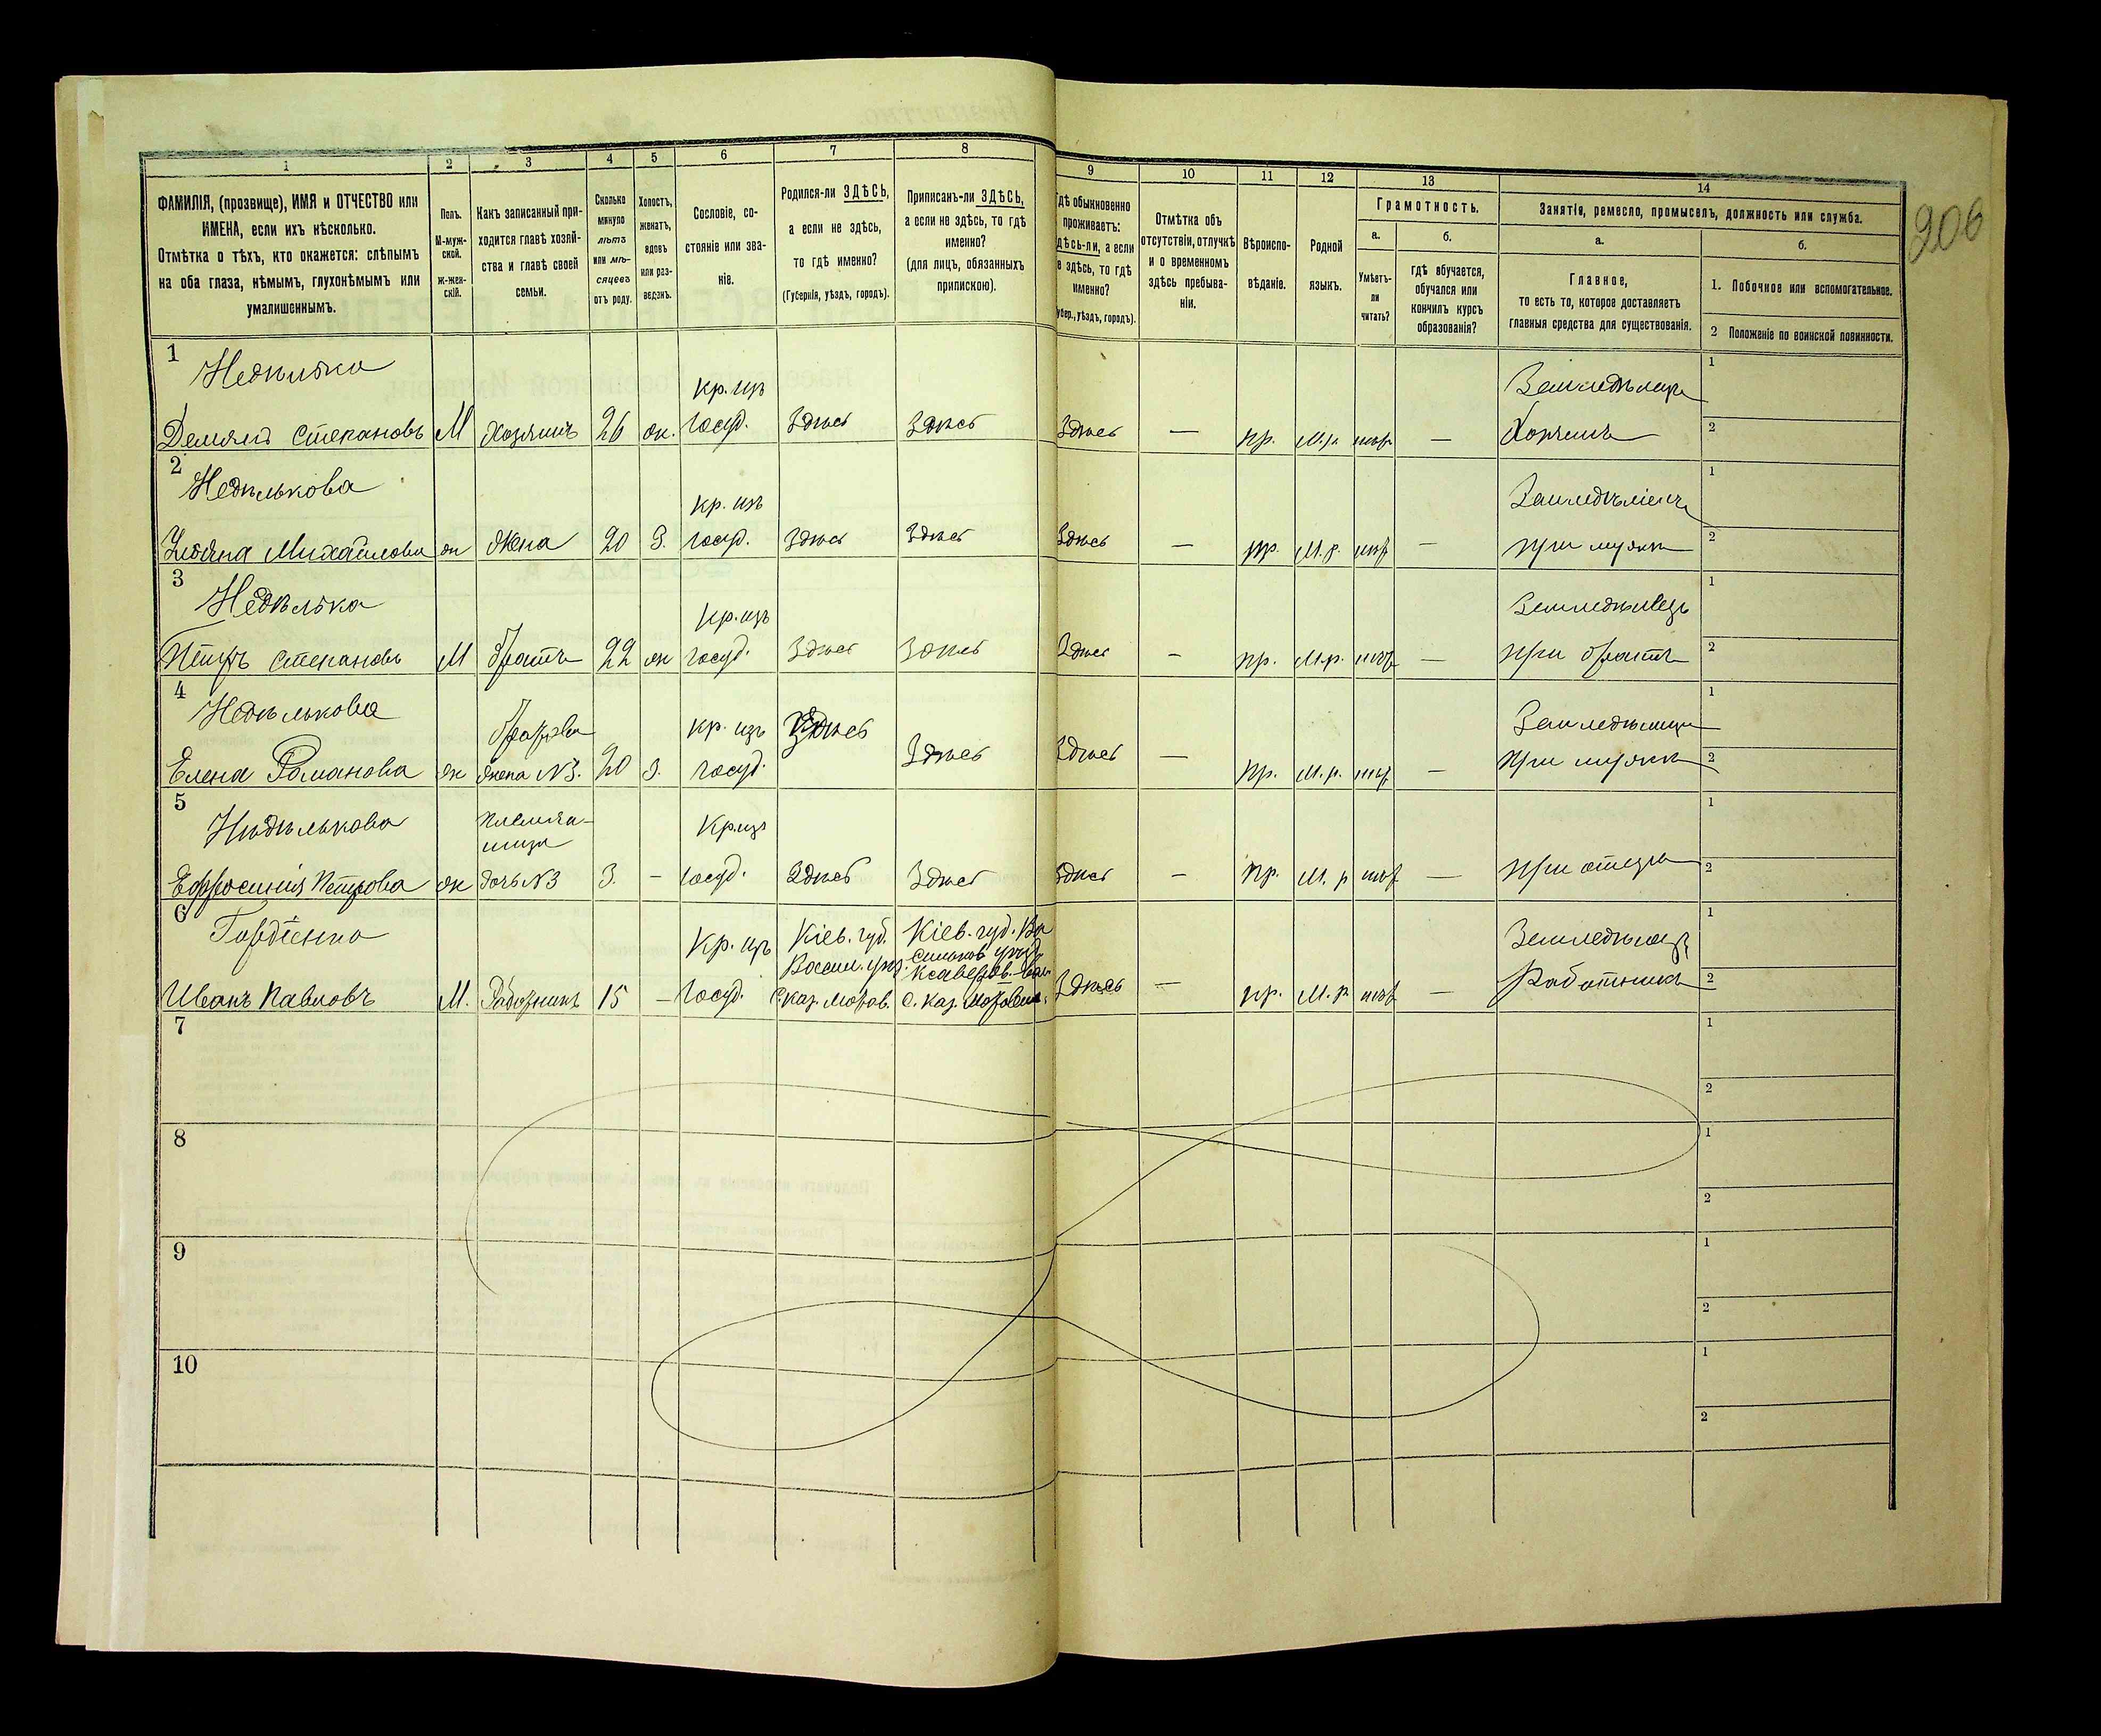 1 2 3 4 5 6 7 8 9 10 11 12 13 14
ФАМИЛІЯ, (прозвище), ИМЯ и ОТЧЕСТВО или
ИМЕНА, если ихъ нѣсколько.
Отмѣтка о тѣхъ, кто окажется: слѣпымъ
на оба глаза, нѣмымъ, глухонѣмымъ или
умалишеннымъ.
Полъ.
М-муж-
ской.
Ж-жен-
скій.
Какъ записанный при-
ходится главѣ хозяй-
ства и главѣ своей
семьи.
Сколько
минуло
лѣтъ
или мѣ-
сяцевъ
отъ роду.
Холостъ,
женатъ,
вдовъ
или раз-
веденъ.
Сословіе, со-
стояніе или зва-
ніе.
Родился-ли ЗДѢСЬ,
а если не здѣсь,
то гдѣ именно?
(Губернія, уѣздъ, городъ).
Приписанъ-ли ЗДѢСЬ,
а если не здѣсь, то гдѣ
именно?
(для лицъ, обязанныхъ
припискою).
Гдѣ обыкновенно
проживаетъ:
здѣсь-ли, а если
не здѣсь, то гдѣ
именно?
(Губер., уѣздъ, городъ).
Отмѣтка объ
отсутствіи, отлучкѣ
и о временномъ
здѣсь пребыва-
ніи.
Вѣроиспо-
вѣданіе.
Родной
языкъ.
Грамотность.
а. б.
Умѣетъ-
ли
читать?
гдѣ обучается,
обучался или
кончилъ курсъ
образованія?
Занятія, ремесло, промыселъ, должность или служба.
а. б.
Главное,
то есть то, которое доставляетъ
главныя средства для существованія.
1. Побочное или вспомогательное.
2 Положеніе по воинской повинности.
206
1 Недѣлька кр. изъ 1
Демянъ Степановъ М Хозяинъ 26 ж. госуд. Здѣсь Здѣсь Здѣсь — пр. М.р. Хозяинъ 2
2 Недѣлькова кр. изъ 1
Михайлова ж Жена 20 З. госуд. Здѣсь Здѣсь Здѣсь — пр. М.р. — при мужѣ 2
3 Недѣлька кр. изъ Земледѣлецъ 1
Петръ Степановъ М братъ 22 ж госуд. Здѣсь Здѣсь Здѣсь — пр. М.р. — при братѣ 2
4 Недѣлькова кр. изъ Здѣсь 1
Елена Романова ж жена №3. 20 З. госуд. Здѣсь Здѣсь — пр. М.р. — при мужѣ 2
5 Недѣлькова племян-
ница кр. изъ 1
Ефросинія Петрова ж дочь №3 3. — госуд. Здѣсь Здѣсь Здѣсь — пр. М.р — при отцѣ 2
6 Гордіенко кр. изъ Кіев. губ. Кіев. губ. Ва Земледѣлецъ 1
Васил. уѣз. сильков уѣзд.
Ксаверов. вол.
Иванъ Павловъ М. 15 — госуд. С. каз. Мотов. с. каз. Здѣсь — пр. М.р — Работникъ 2
7 1
2
8 1
2
9 1
2
10 1
2